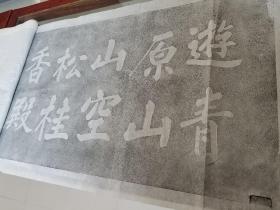 遊青
原山
山空
松桂
香殿